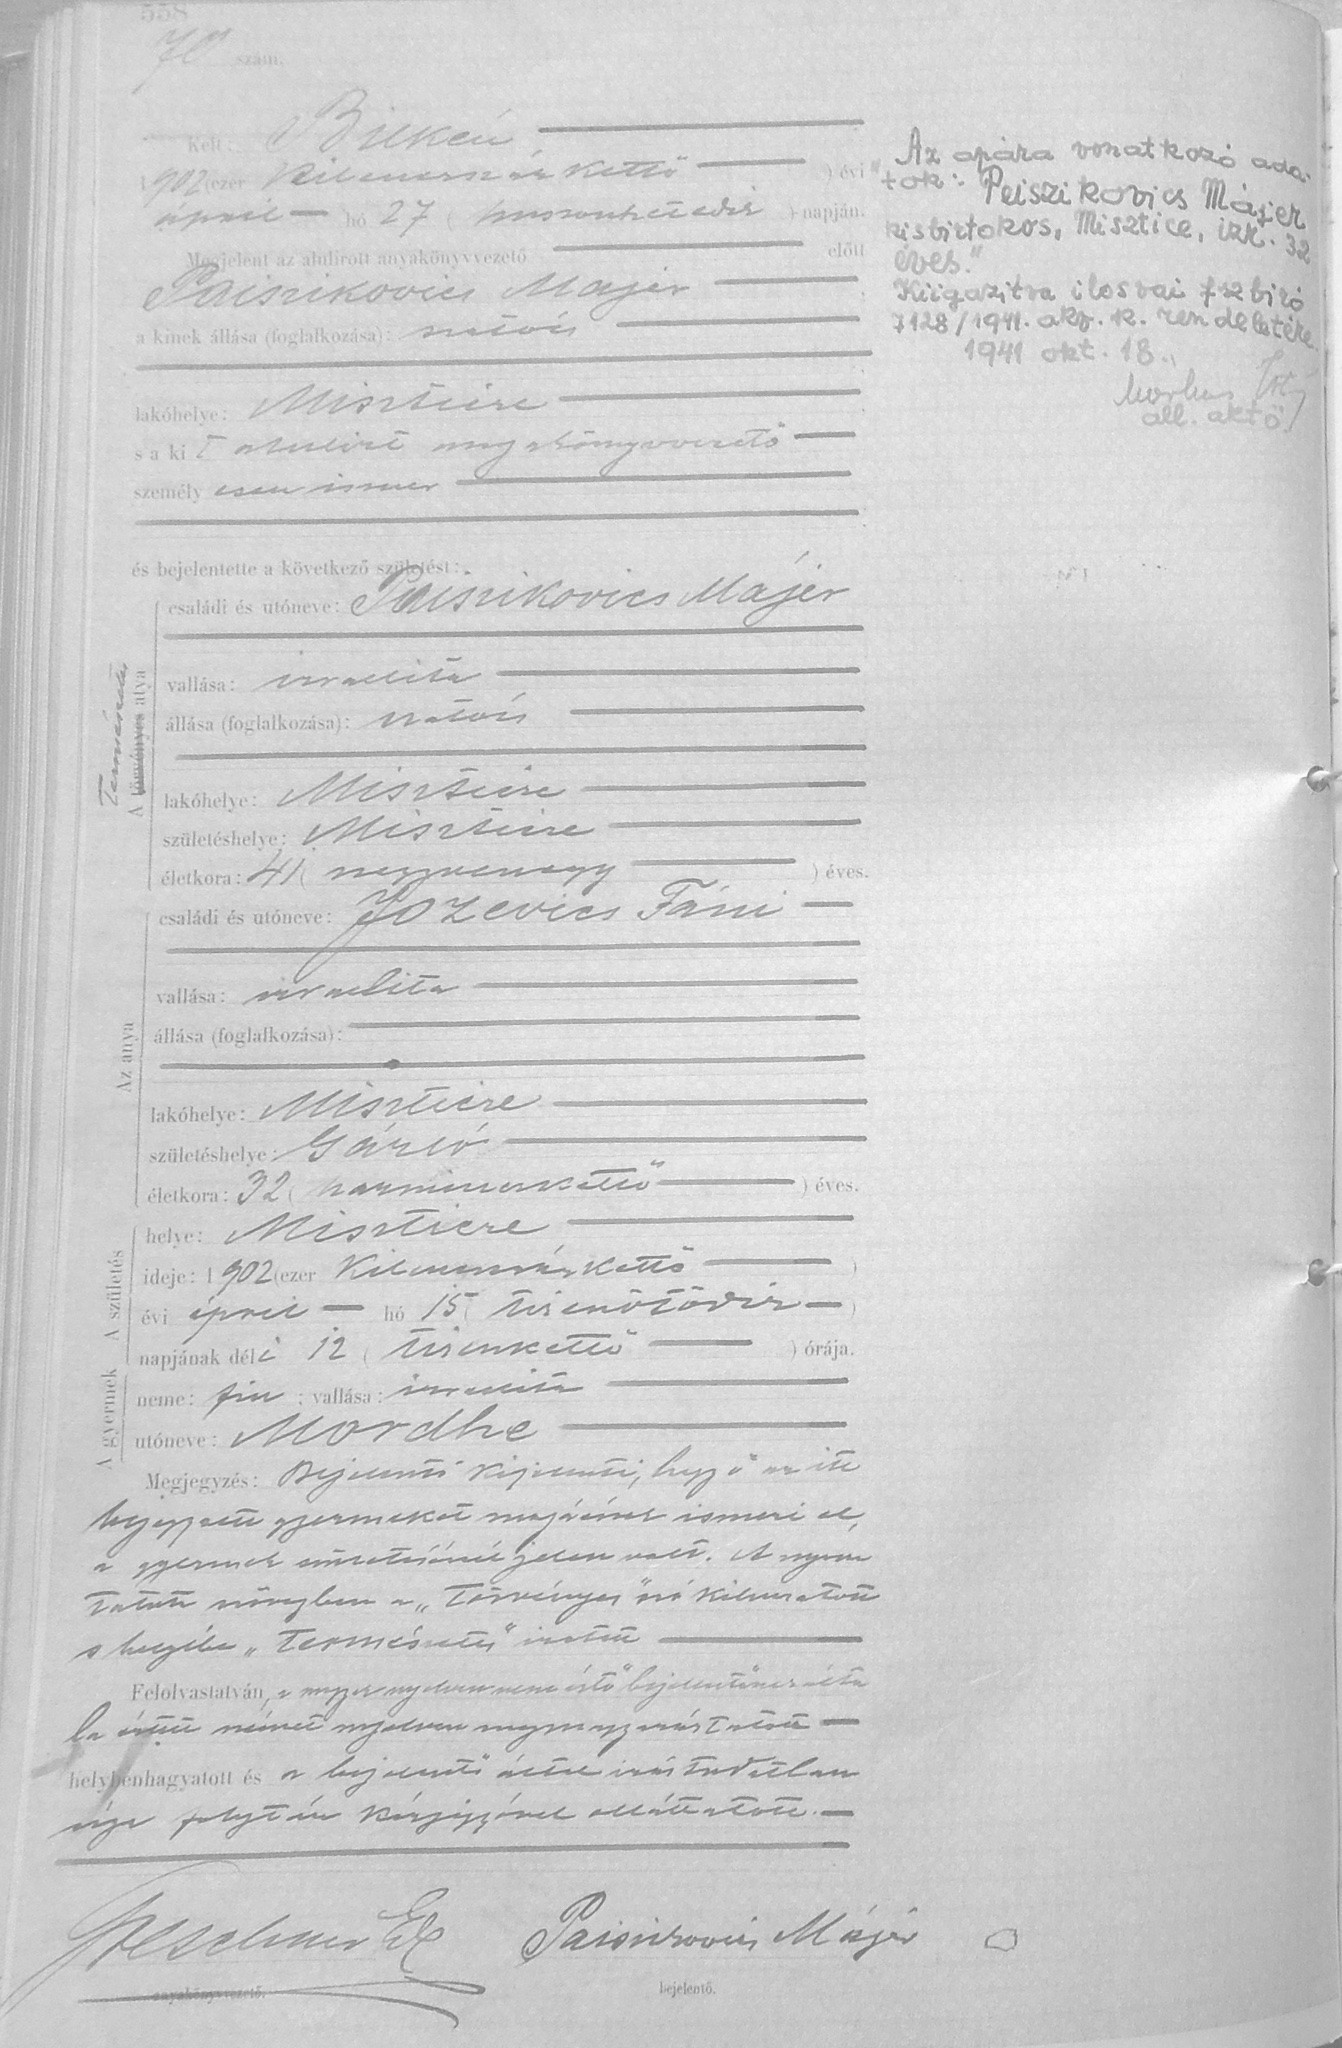 558
70 szám.
Kelt: Bilkén
1902 (ezer kilencszázkettő) évi
április hó 27 (huszonhetedik) napján.
Megjelent az alulirott anyakönyvvezető előtt
Paiszikovics Majer
a kinek állása (foglalkozása): szatócs
lakóhelye: Miszticze
s a ki t alulirt anyakönyvvezető
személy esen ismer
és bejelentette a következő születést:
A törvényes atya
Természetes
családi és utóneve: Paiszikovics Májer
vallása: izraelita
állása (foglalkozása): szatócs
lakóhelye: Miszticze
születéshelye: Miszticze
életkora: 41 (negyvenegy) éves.
Az anya
családi és utóneve: Jozevics Fáni
vallása: izraelita
állása (foglalkozása):
lakóhelye: Miszticze
születéshelye:
életkora: 32 (harminczkettő) éves.
A születés
helye: Miszticze
ideje: 1902 (ezer kilenczszázkettő)
évi április hó 15 (tizenötödik)
napjának déli 12 (tizenkettő) órája.
A gyermek
neme: fiu; vallása: izraelita
utóneve: Mordhe
Megjegyzés: Bejelentő kijelenti, hogy ő az itt
bejegyzett gyermeket magáénak ismeri el,
a gyermek születésénél jelen volt. A nyom
tatott szövegben a „törvényes" szó kihuzatott
s helyébe „természetes" iratott
Felolvastatván, a magyar nyelvet nem értő bejelentőnek álta
la értett német nyelven megmagyaráztatott
helybenhagyatott és a bejelentő által irástudatlan
sága folytán kézjegyével elláttatott.
anyakönyvvezető.
Paiszikovics Májer
bejelentő.
Az apára vonatkozó ada-
tok: „Peiszikovics Májer
kisbirtokos, Misztice, izr. 32
éves."
Kiigazitva ilosvai fszbiró
7128/1941. akv. sz. rendeletére.
1941 okt. 18.